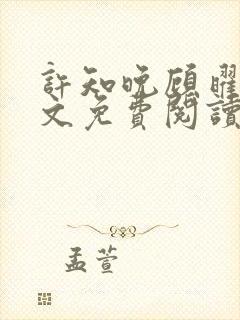 許知晚顾曜
文免費閱讀
孟萱